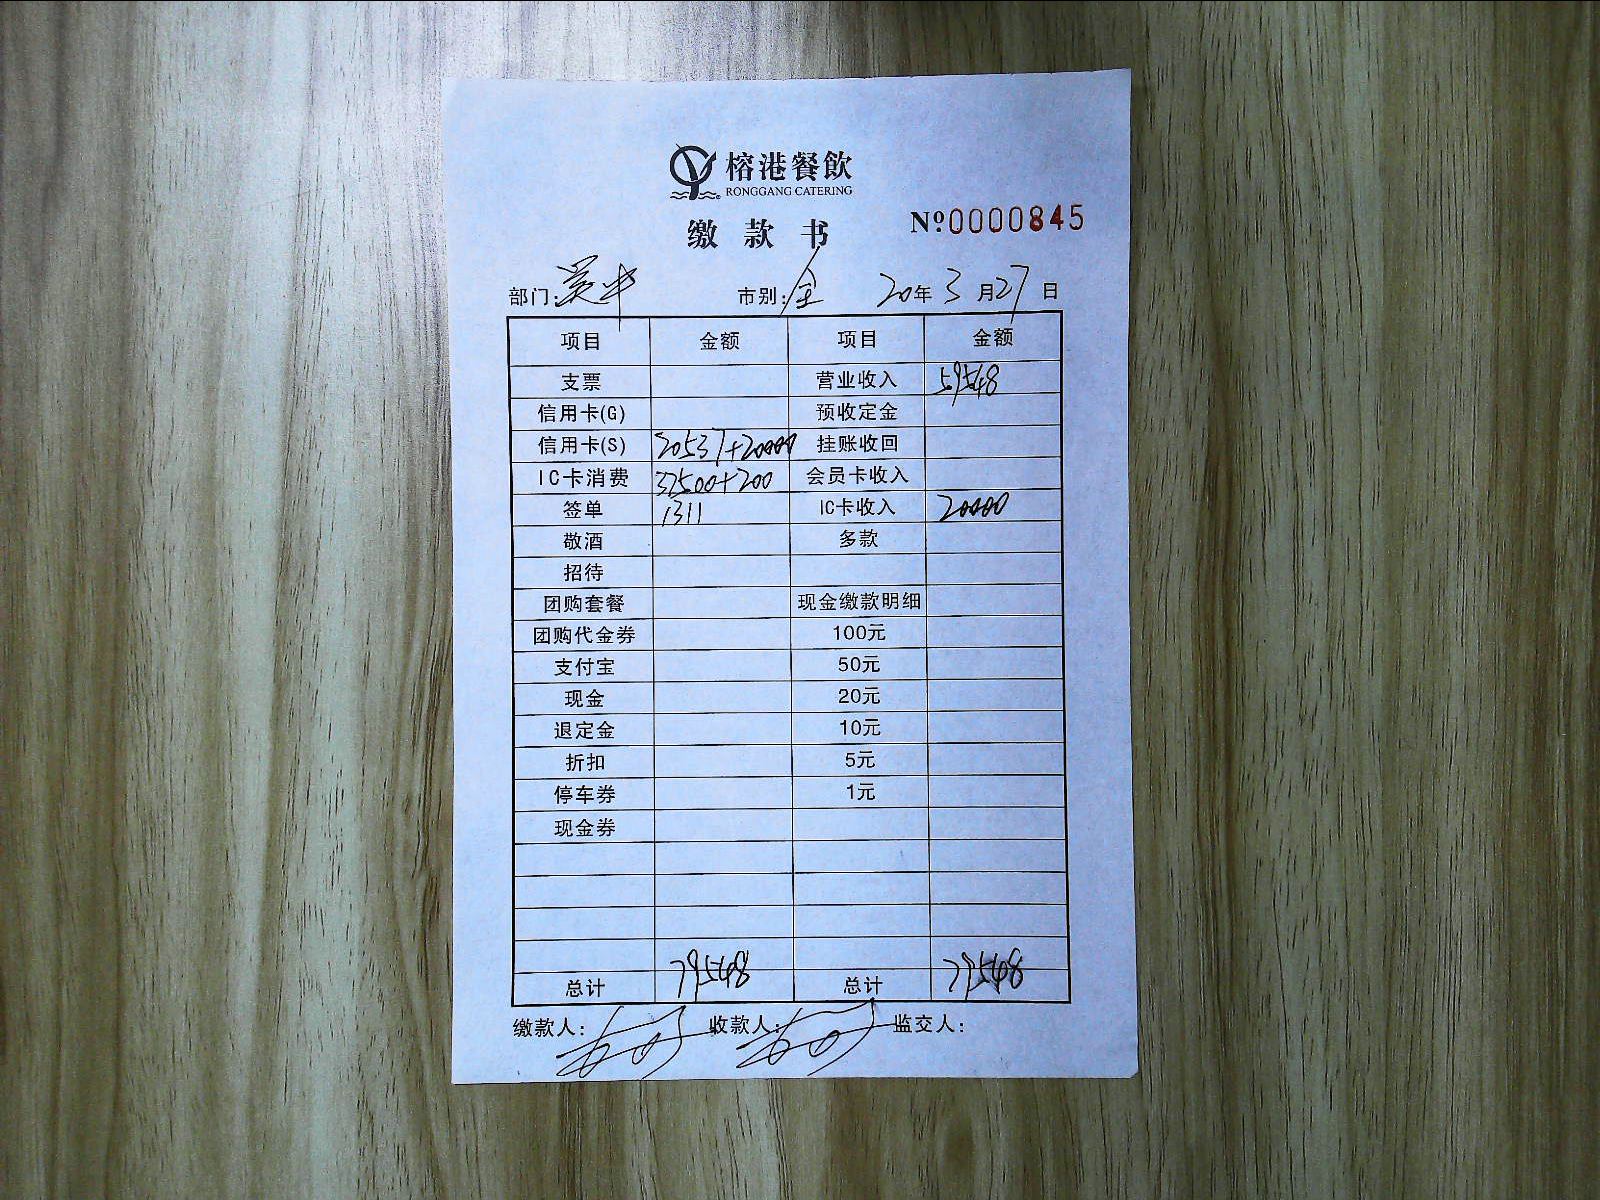 榕港餐飲
RONGGANG CATERING
缴款书
№:0000845
部门:吴中 市别:全 20年3月27日
项目 金额 项目 金额
支票 营业收入 59548
信用卡(G) 预收定金
信用卡(S) 20537+20000 挂账收回
IC卡消费 37500+200 会员卡收入
签单 1311 IC卡收入 20000
敬酒 多款
招待
团购套餐 现金缴款明细
团购代金券 100元
支付宝 50元
现金 20元
退定金 10元
折扣 5元
停车券 1元
现金券
总计 79548 总计 79548
缴款人: 收款人: 监交人: